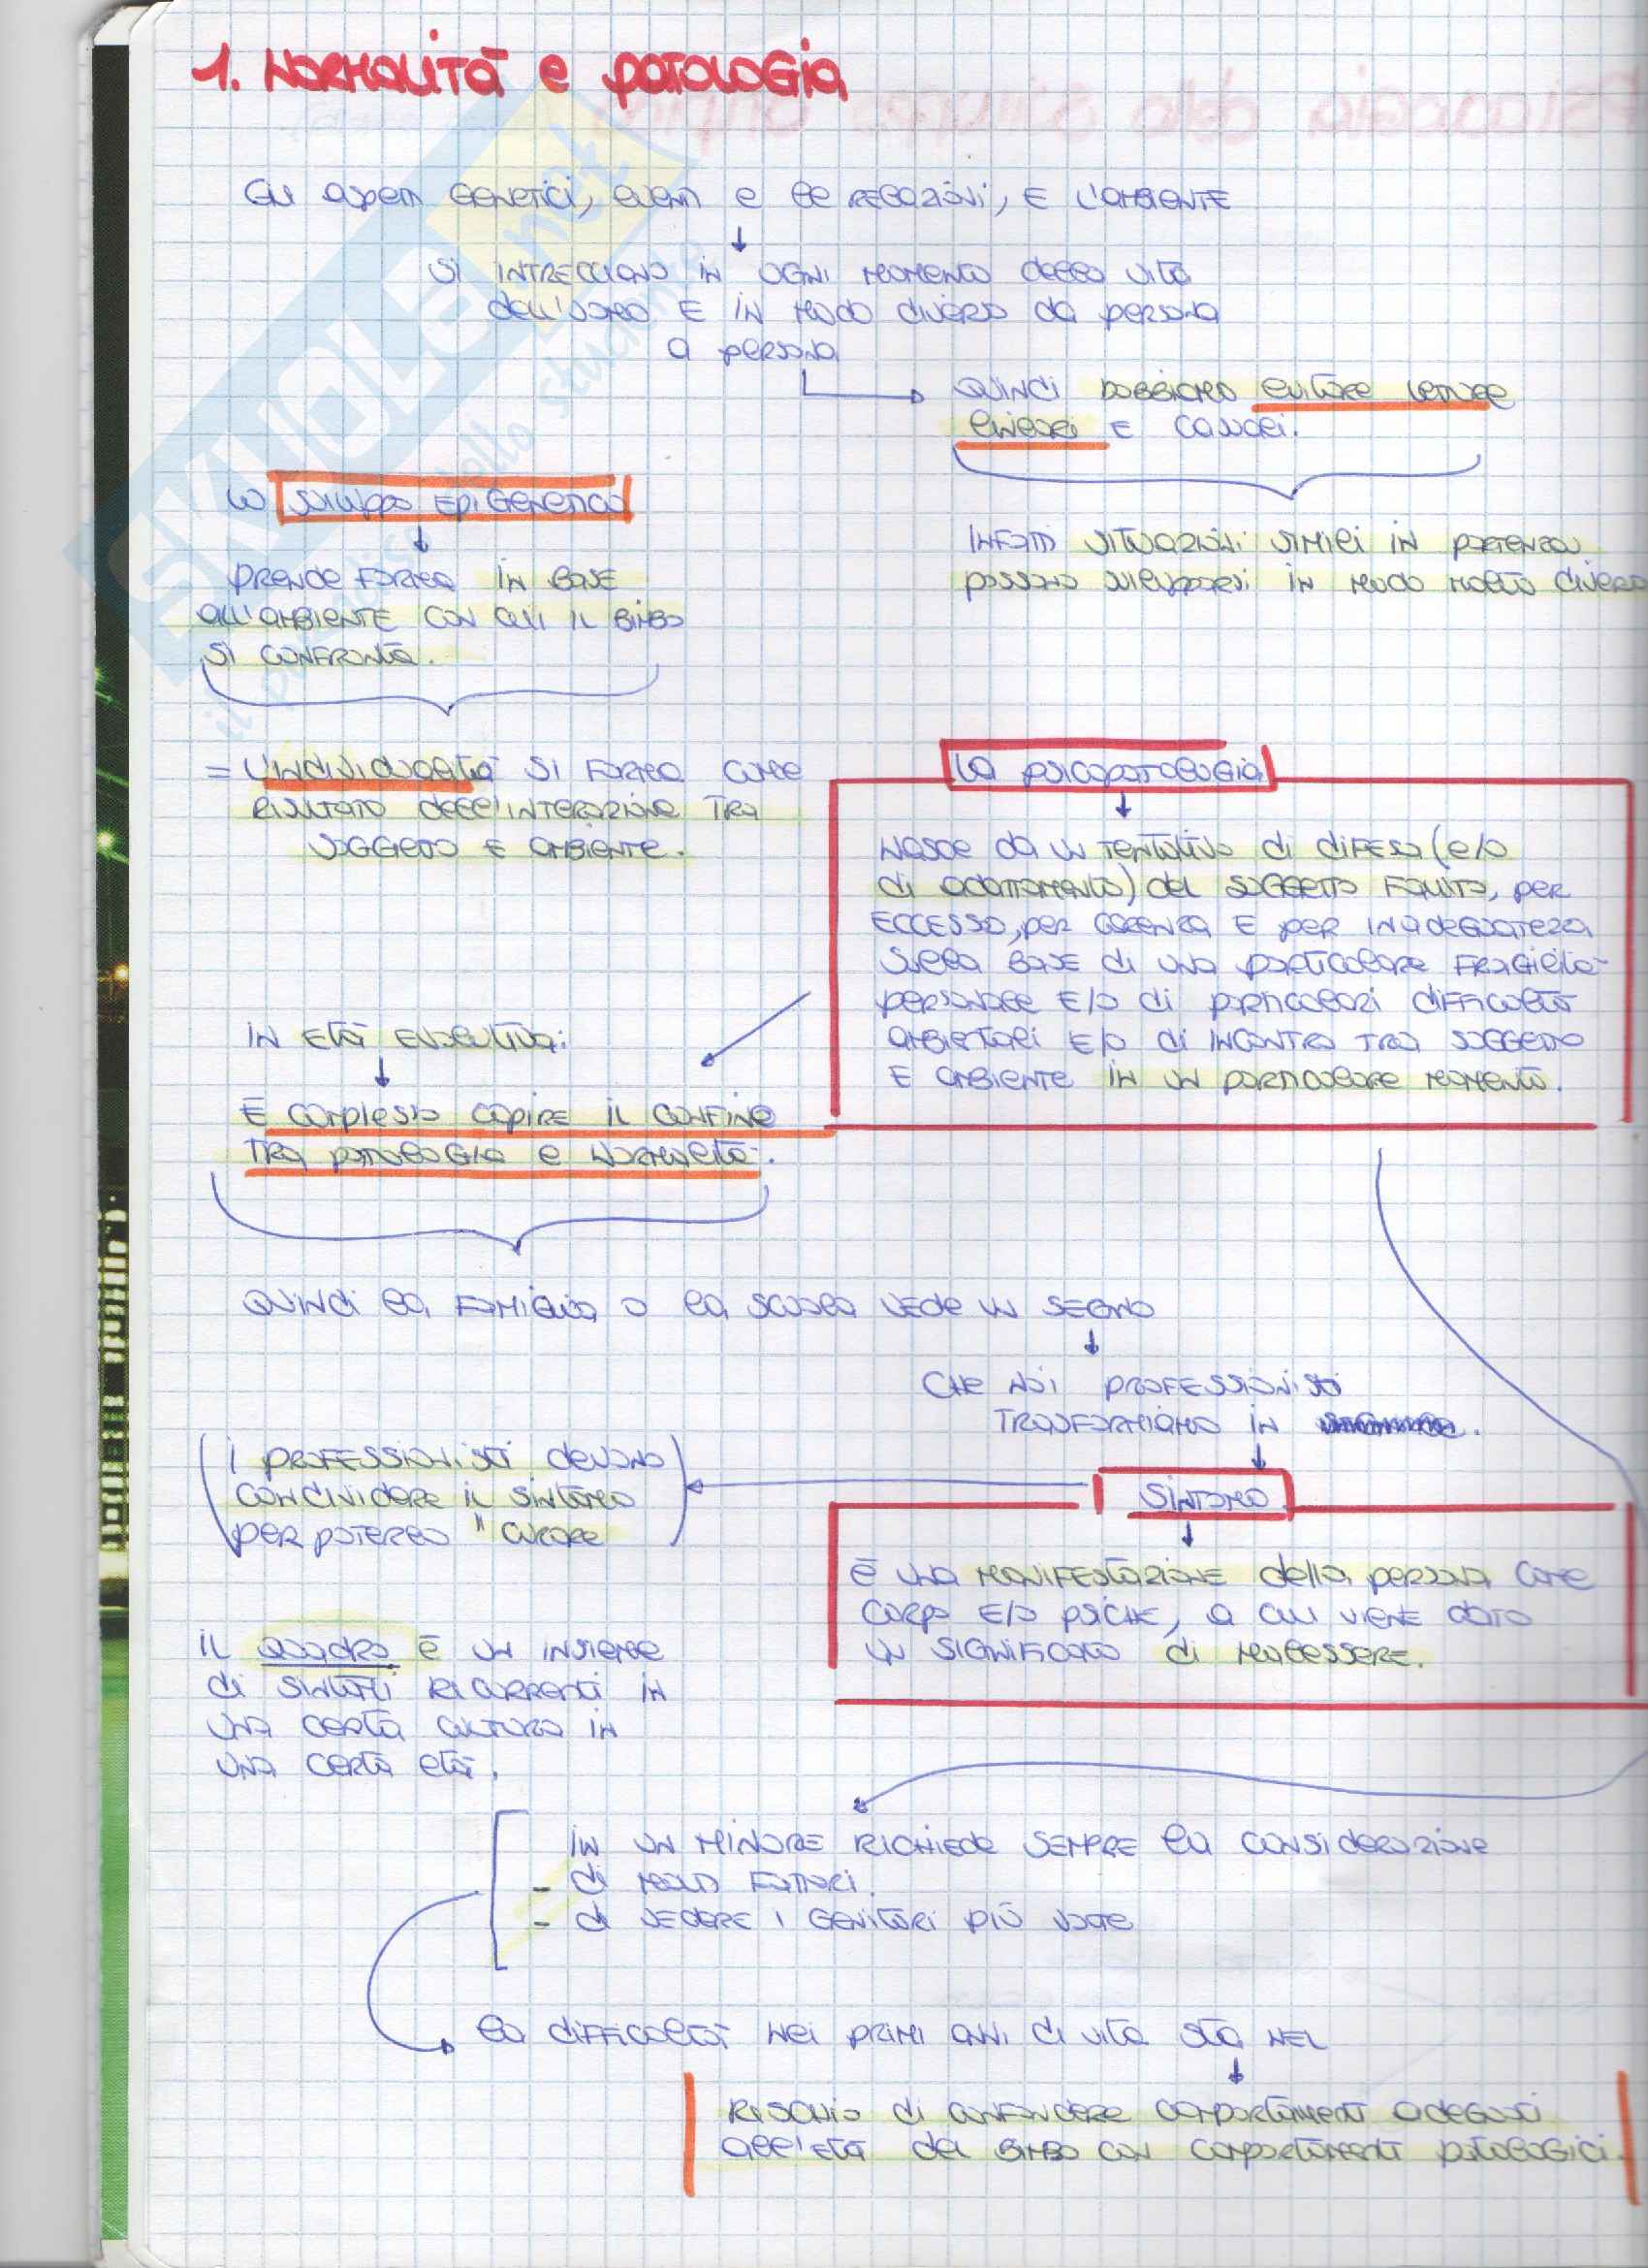 1. NORMALITÀ e PATOLOGIA
Gli aspetti GENETICI, eventi e le RELAZIONI, E L'AMBIENTE
↓
SI INTRECCIANO IN OGNI MOMENTO della VITA
dell'UOMO E IN MODO diverso da persona
a persona
QUINDI DOBBIAMO evitare letture
lineari E causali.
INFATTI SITUAZIONI SIMILI IN PARTENZA
possono svilupparsi IN MODO MOLTO diverso
LO SVILUPPO EPIGENETICO
↓
PRENDE FORMA IN BASE
ALL'AMBIENTE CON CUI IL BIMBO
SI CONFRONTA.
= L'INDIVIDUALITÀ SI FORMA COME
RISULTATO dell'INTERAZIONE TRA
SOGGETTO E AMBIENTE.
LA PSICOPATOLOGIA
↓
NASCE DA UN TENTATIVO di DIFESA (e/o
di adattamento) del SOGGETTO FALLITO, PER
ECCESSO, PER CARENZA E PER INADEGUATEZZA
SULLA BASE di UNA PARTICOLARE FRAGILITÀ
PERSONALE E/O di PARTICOLARI DIFFICOLTÀ
AMBIENTALI E/O di INCONTRO TRA SOGGETTO
E AMBIENTE IN UN PARTICOLARE MOMENTO.
IN ETÀ EVOLUTIVA:
↓
È COMPLESSO CAPIRE IL CONFINE
TRA PATOLOGIA e NORMALITÀ.
QUINDI LA FAMIGLIA O LA SCUOLA VEDE UN SEGNO
↓
CHE NOI PROFESSIONISTI
TRASFORMIAMO IN
↓
SINTOMO.
↓
È UNA MANIFESTAZIONE della PERSONA COME
CORPO E/O PSICHE, A CUI VIENE DATO
UN SIGNIFICATO di MALESSERE.
(I PROFESSIONISTI devono
CONDIVIDERE IL SINTOMO
PER POTERLO "CURARE)
IL QUADRO È UN INSIEME
di SINTOMI RICORRENTI IN
UNA CERTA CULTURA IN
UNA CERTA ETÀ.
IN UN MINORE RICHIEDE SEMPRE LA CONSIDERAZIONE
- di MOLTI FATTORI.
- di VEDERE I GENITORI PIÙ VOLTE
LA DIFFICOLTÀ NEI PRIMI ANNI DI VITA STA NEL
↓
RISCHIO di CONFONDERE COMPORTAMENTI ADEGUATI
ALL'ETÀ del BIMBO CON COMPORTAMENTI PATOLOGICI.
SKUOLA.net